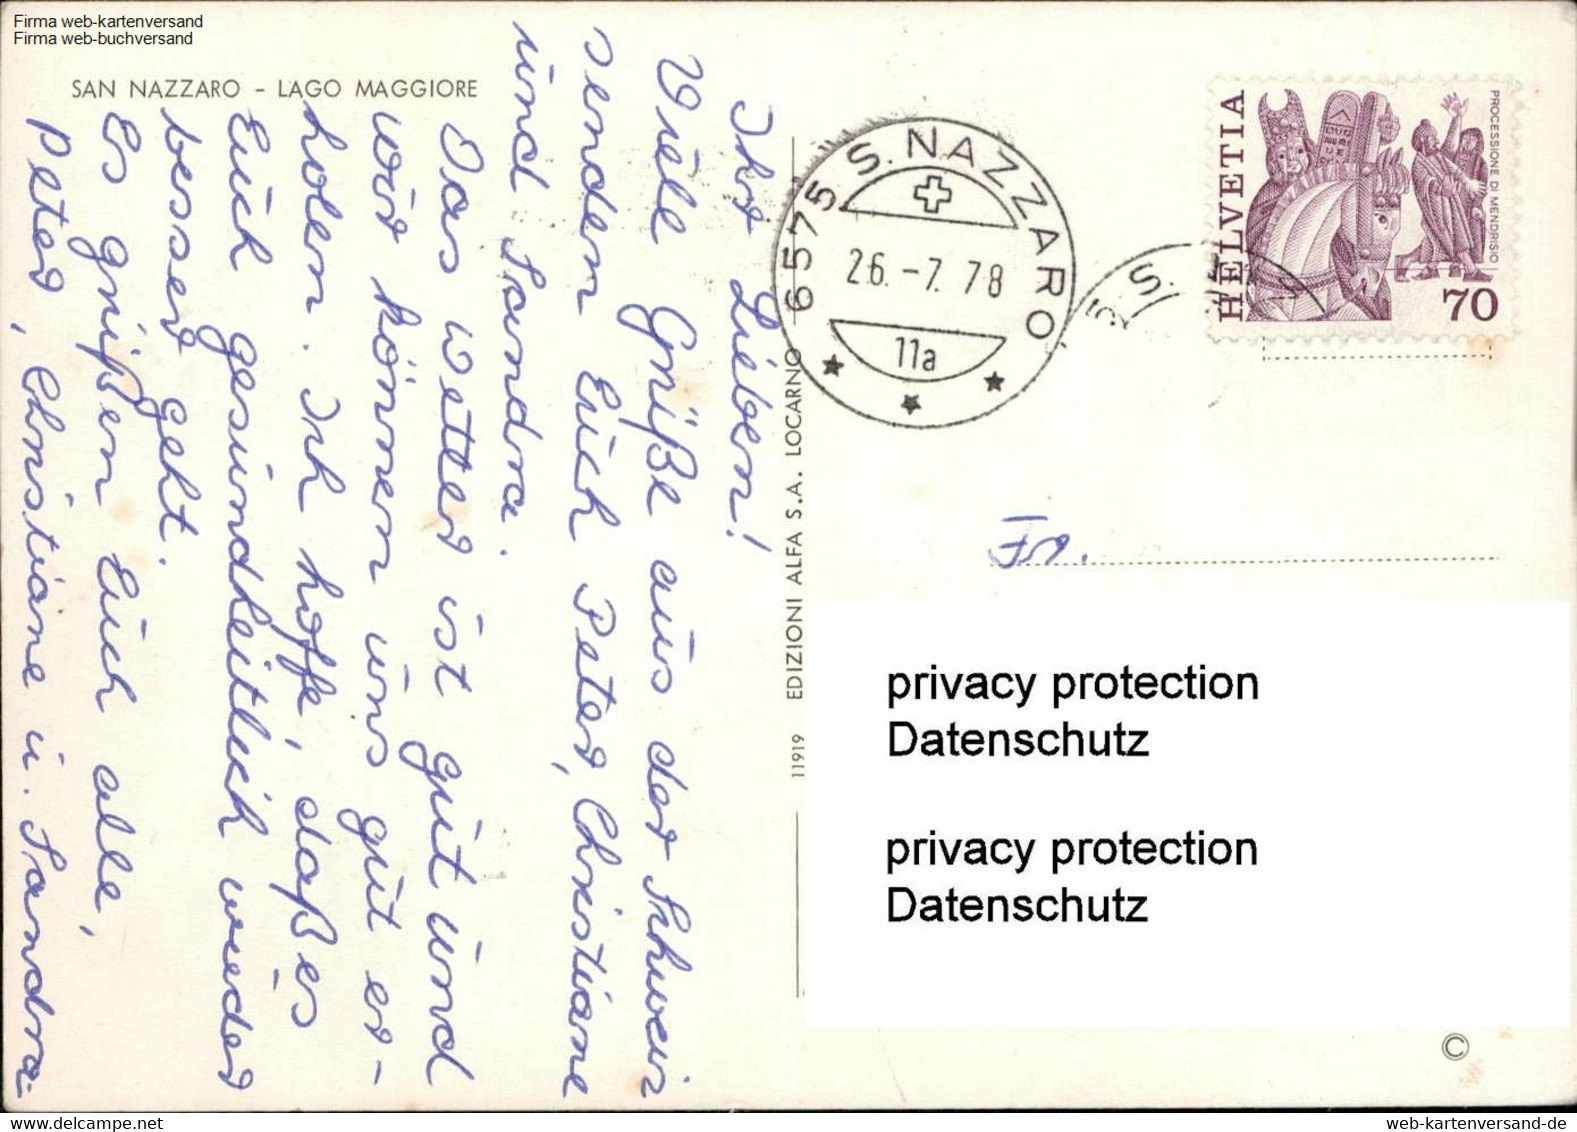 Firma web-kartenversand
Firma web-buchversand
SAN NAZZARO - LAGO MAGGIORE
Ihr Lieben!
Viele Grüße aus der Schweiz
senden Euch Peter, Christiane
und Sandra.
Das Wetter ist gut und
wir können uns gut er-
holen. Ich hoffe, daß es
Euch gesundheitlich wieder
besser geht.
Es grüßen Euch alle,
Peter, Christiane u. Sandra
11919 EDIZIONI ALFA S.A. LOCARNO
6575 S. NAZZARO
26.-7.78
11a
S.
HELVETIA
PROCESSIONE DI MENDRISIO
70
privacy protection
Datenschutz
privacy protection
Datenschutz
©
web-kartenversand-de